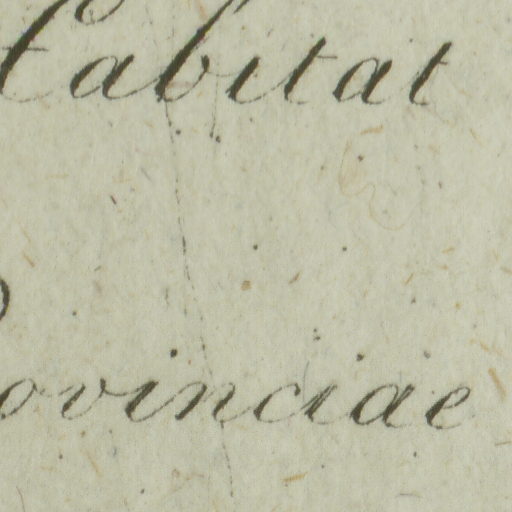 Habitat
ovinciae